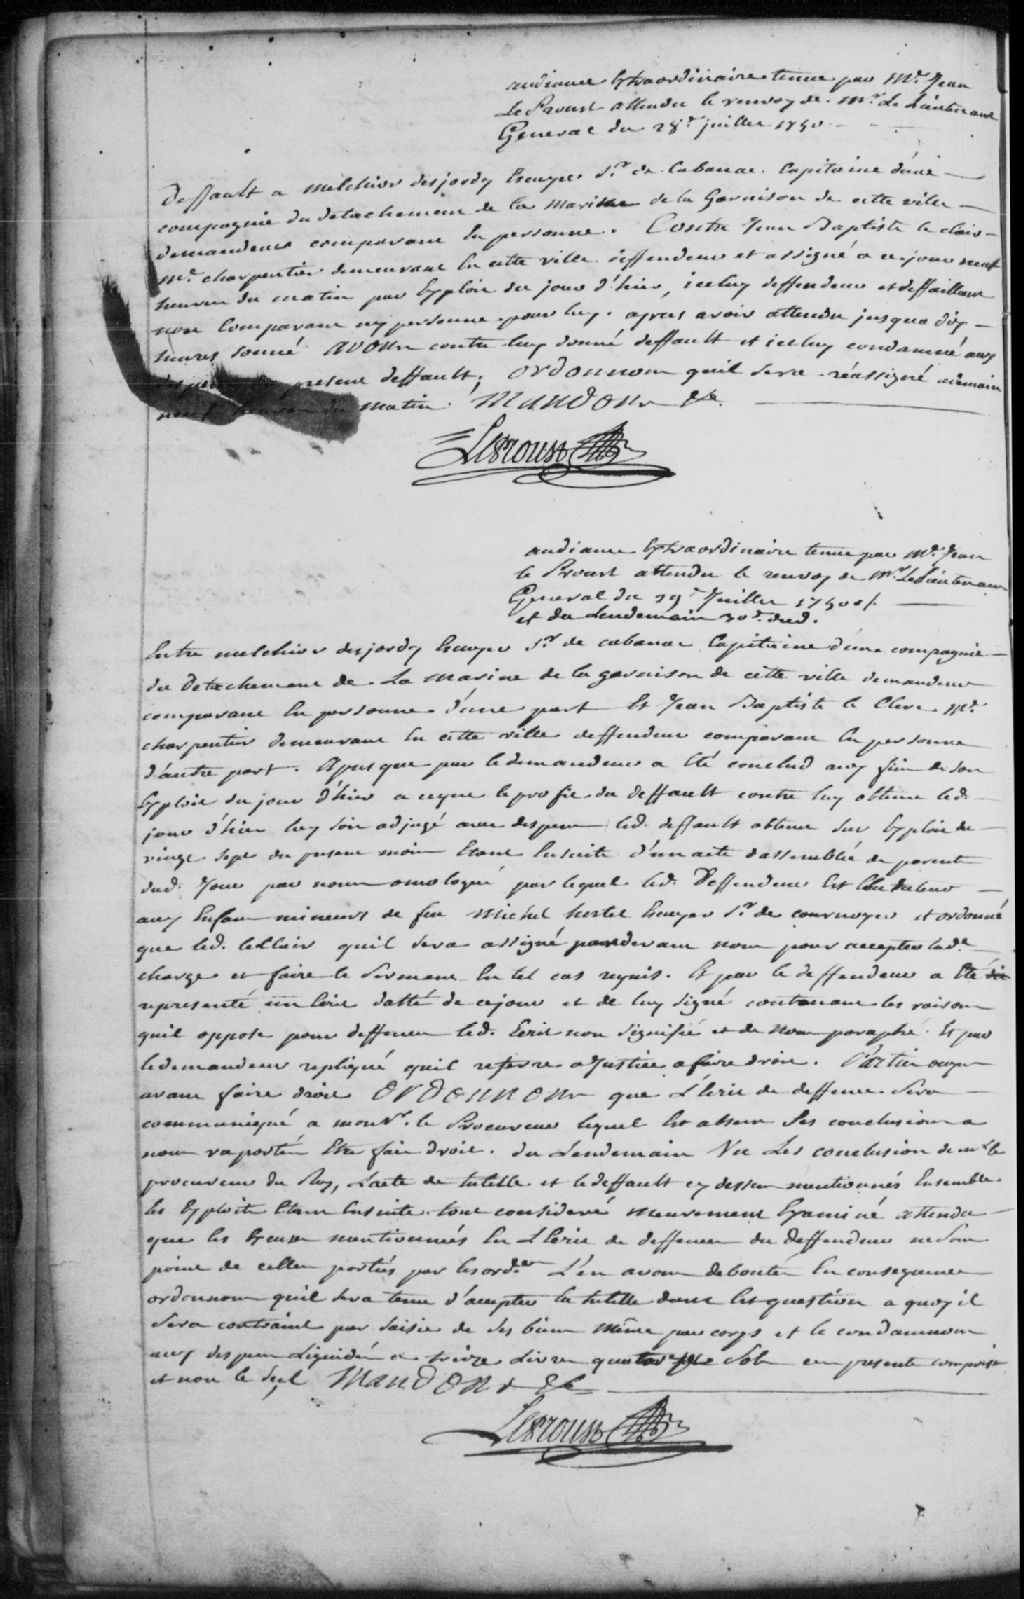 audiance Extraordinaire tenue par Mr. Jean
Le Proust attendu le renvoy de Mr. Le Lieutenant
General du 28e. juillet 1750
Deffault a Melchior desjordy Ecuyer Sr. de Cabanac Capitaine d'une
compagnie du detachement de la Marine de la Garnison de cette ville
demandeur comparant En personne. Contre Jean Baptiste le clair
me. charpentier demeurant En cette ville deffendeur et assigné a ce jour neuf
heures du matin par Exploit du jour d'hier, iceluy deffendeur et deffaillant
non Comparant ny personne pour luy. apres avoir attendu jusqua dix
heures sonné avons contre luy donné deffault et iceluy condamné aux
present deffault, ordonnons quil sera réassigné demain
neuf heures du matin Mandons &c.
LeProust
audiance Extraordinaire tenue par Mr. Jean
le Proust attendu le renvoy de Mr. Le Lieutenant
General du 29e Juillet 1750 ./.
et du Lendemain 30e. dud.
Entre melchior desjordy Ecuyer Sr. de cabanac Capitaine d'une compagnie
du Detachement de La Marine de la garnison de cette ville demandeur
comparant En personne d'une part Et Jean Baptiste le Clerc Me.
charpentier demeurant En cette ville deffendeur comparant En personne
d'autre part. Apres que par le demandeur a Eté conclud aux fins de son
Exploit du jour d'hier a ceque le profit du deffault contre luy obtenu led.
jour d'hier luy soit adjugé avec despens led. deffault obtenu sur Exploit du
vingt sept du present mois Etant Ensuite d'un acte d'assemblée de parents
dud. Jour par nous omologué par lequel led. Deffendeur Est Elu tuteur
aux Enfans mineurs de feu Michel hertel Ecuyer Sr. de cournoyer et ordonné
que led. leClair quil sera assigné pardevant nous pour accepter lade.
charge et faire le serment En tel cas requis. Et par le deffendeur a Eté
representé un Ecrit datté de cejour et de luy signé contenant les raisons
quil oppose pour deffenses led. Ecrit non signifié et de Nous paraphé. Et par
le demandeur repliqué quil referre a Justice a faire droit. Parties ouyes
avant faire droit ordonnons que L'Ecrit de deffense sera
communiqué a monsr. le Procureur lequel Est absent Ses conclusions a
nous raportées Etre fait droit. du Lendemain Vu Les conclusions de mr. le
procureur du Roy, Lacte de tutelle et le deffault cy dessus mentionnés Ensemble
les Exploits Etant Ensuite tout consideré meurement Examiné attendu
que les Excuses mentionnées En L'Ecrit de deffenses du deffendeur ne sont
point de celles portées par les ordces. L'en avons debouté En consequence
ordonnons quil sera tenu d'accepter la tutelle dont Est question a quoy il
Sera contraint par saisie de Ses biens même par corps et le condamnons
aux despens Liquidés a treize Livres quatorze Sols ces presentes comprises
et non le scel Mandons &c
LeProust